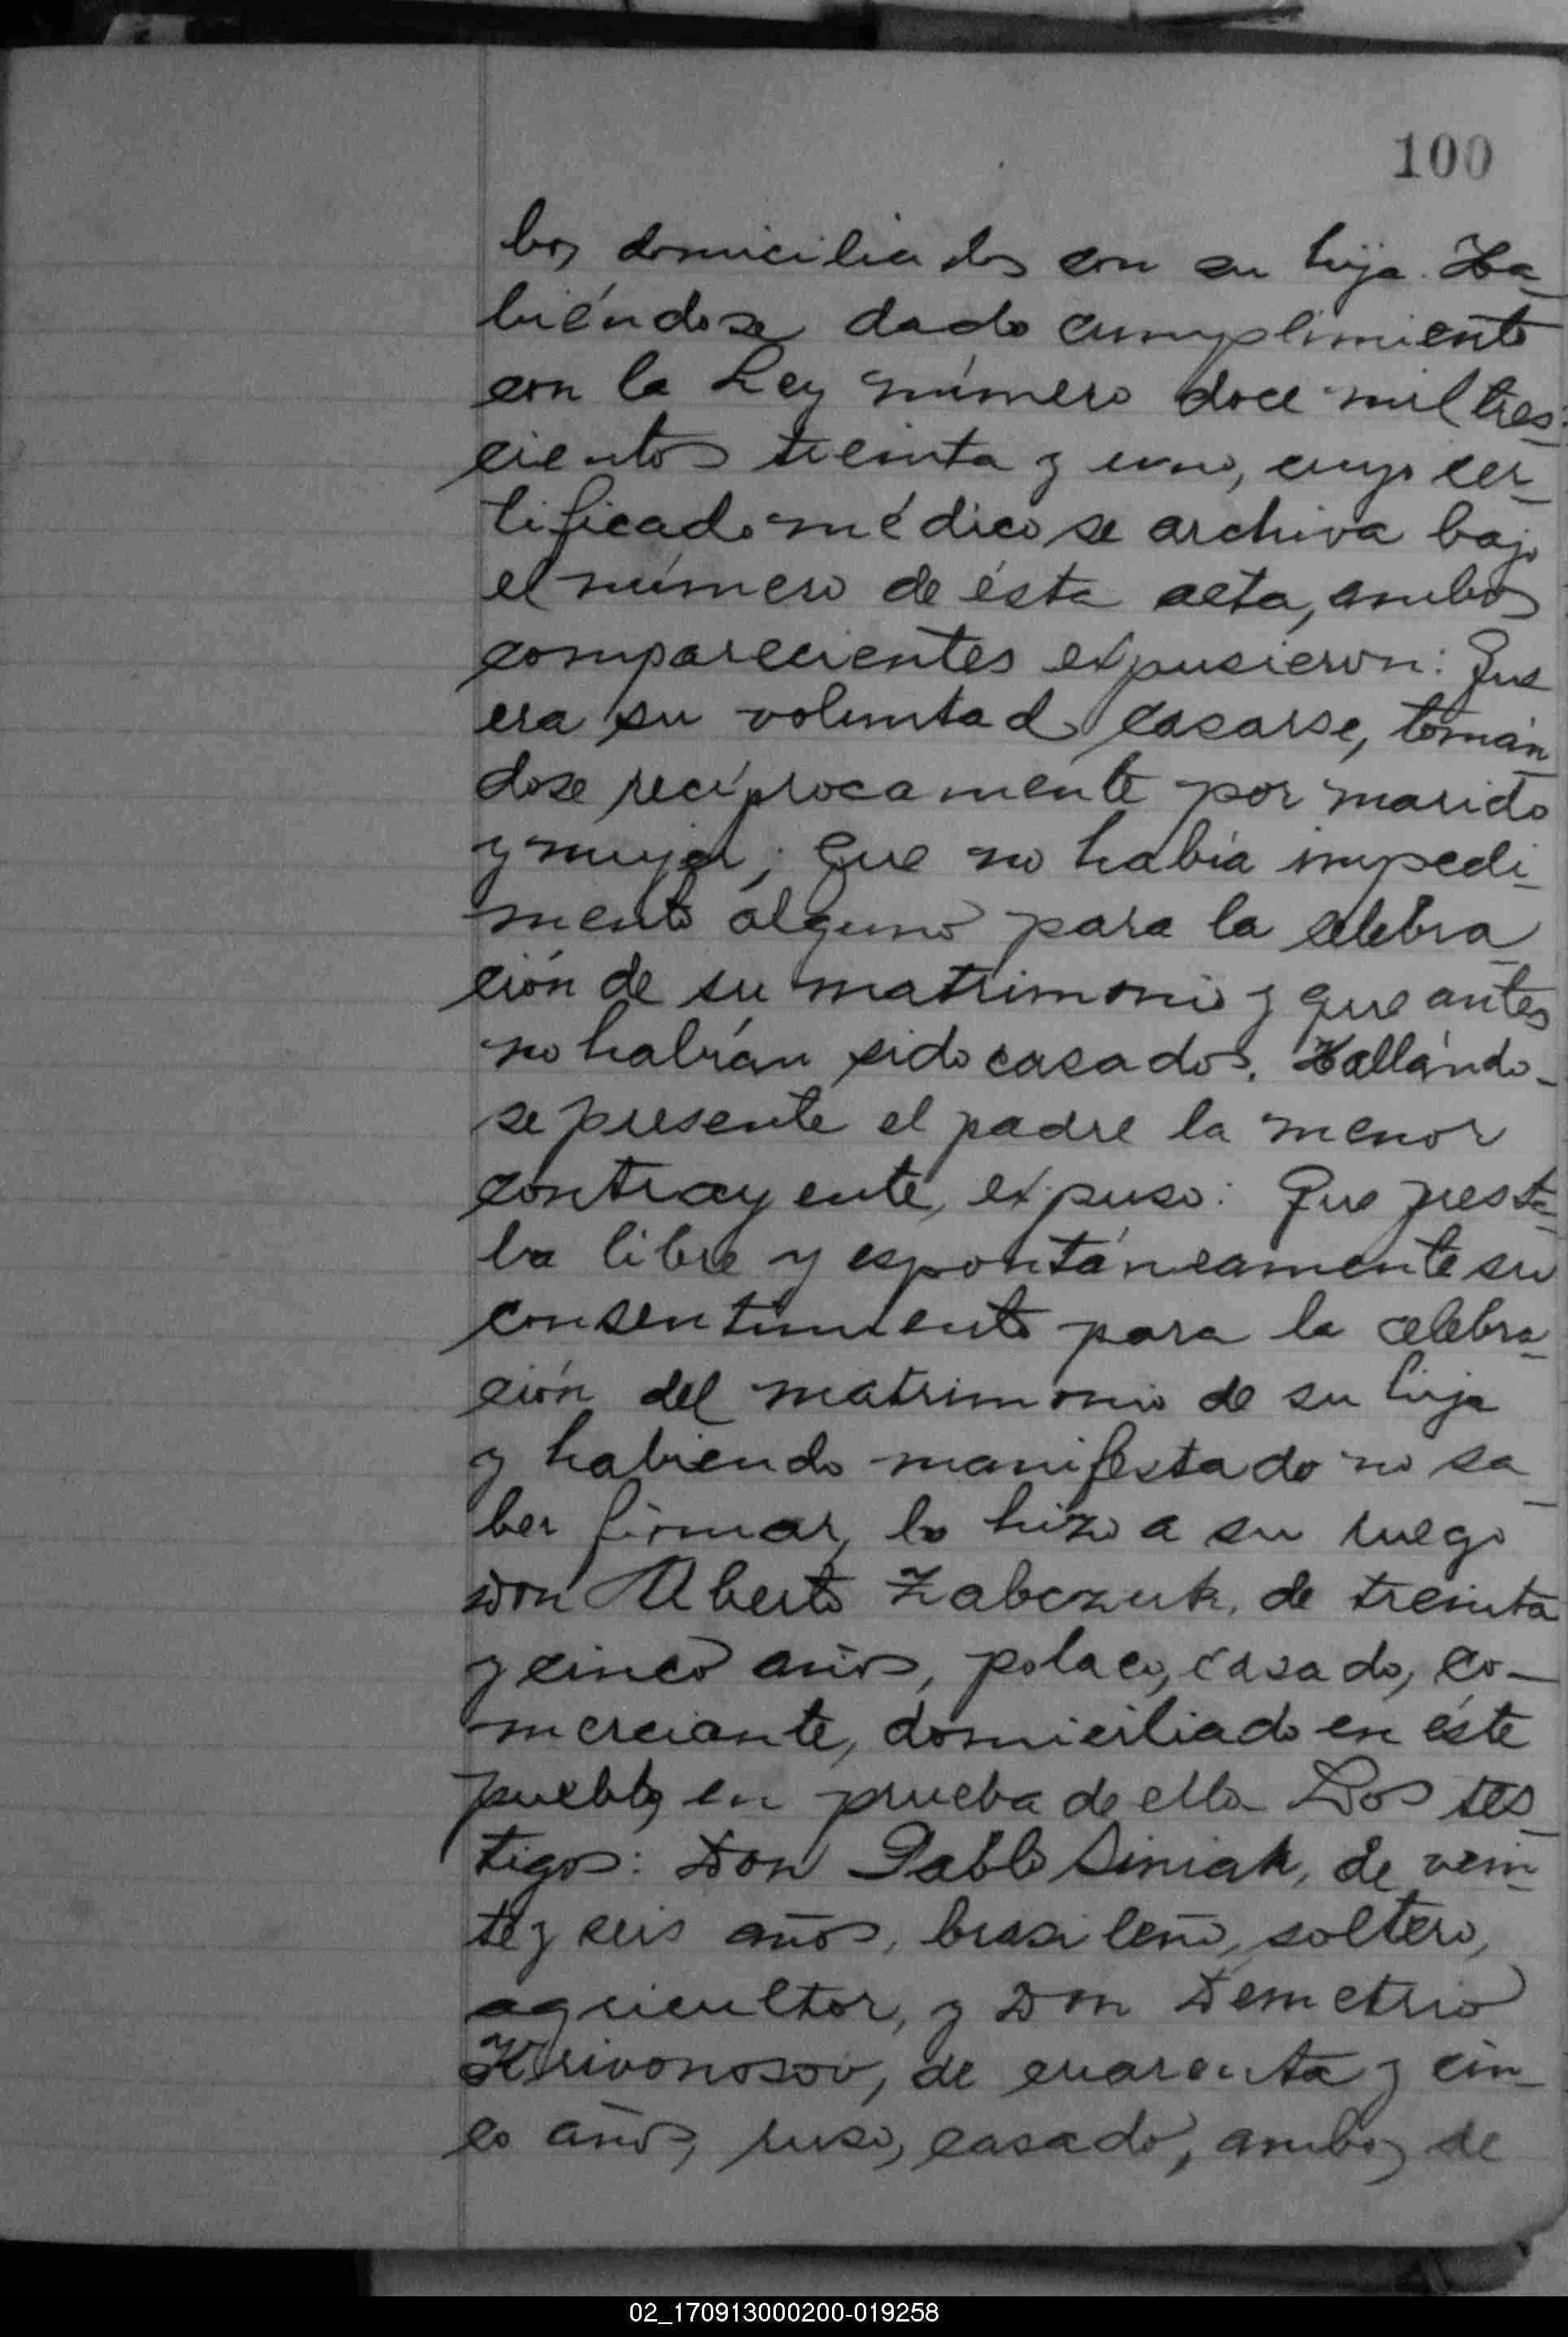 100
bos domiciliados con su hija. Ha-
biéndose dado cumplimiento
con la Ley número doce mil tres-
cientos treinta y uno, cuyo cer-
tificado médico se archiva bajo
el número de ésta acta, ambos
comparecientes expusieron: Que
era su voluntad casarse, tomán-
dose recíprocamente por marido
y mujer; que no había impedi-
mento alguno para la celebra-
ción de su matrimonio y que antes
no habían sido casados. Hallándo-
se presente el padre la menor
contrayente, expuso: Que presta-
ba libre y espontáneamente su
consentimiento para la celebra-
ción del matrimonio de su hija
y habiendo manifestado no sa-
ber firmar, lo hizo a su ruego
Don Alberto Zabczuk, de treinta
y cinco años, polaco, casado, co-
merciante, domiciliado en éste
pueblo, en prueba de ello Los tes-
tigos: Don Pablo Siniak, de vein-
te y seis años, brasileño, soltero,
agricultor, y Don Demetrio
Krivonosov, de cuarenta y cin-
co años, ruso, casado, ambos de
02_170913000200-019258